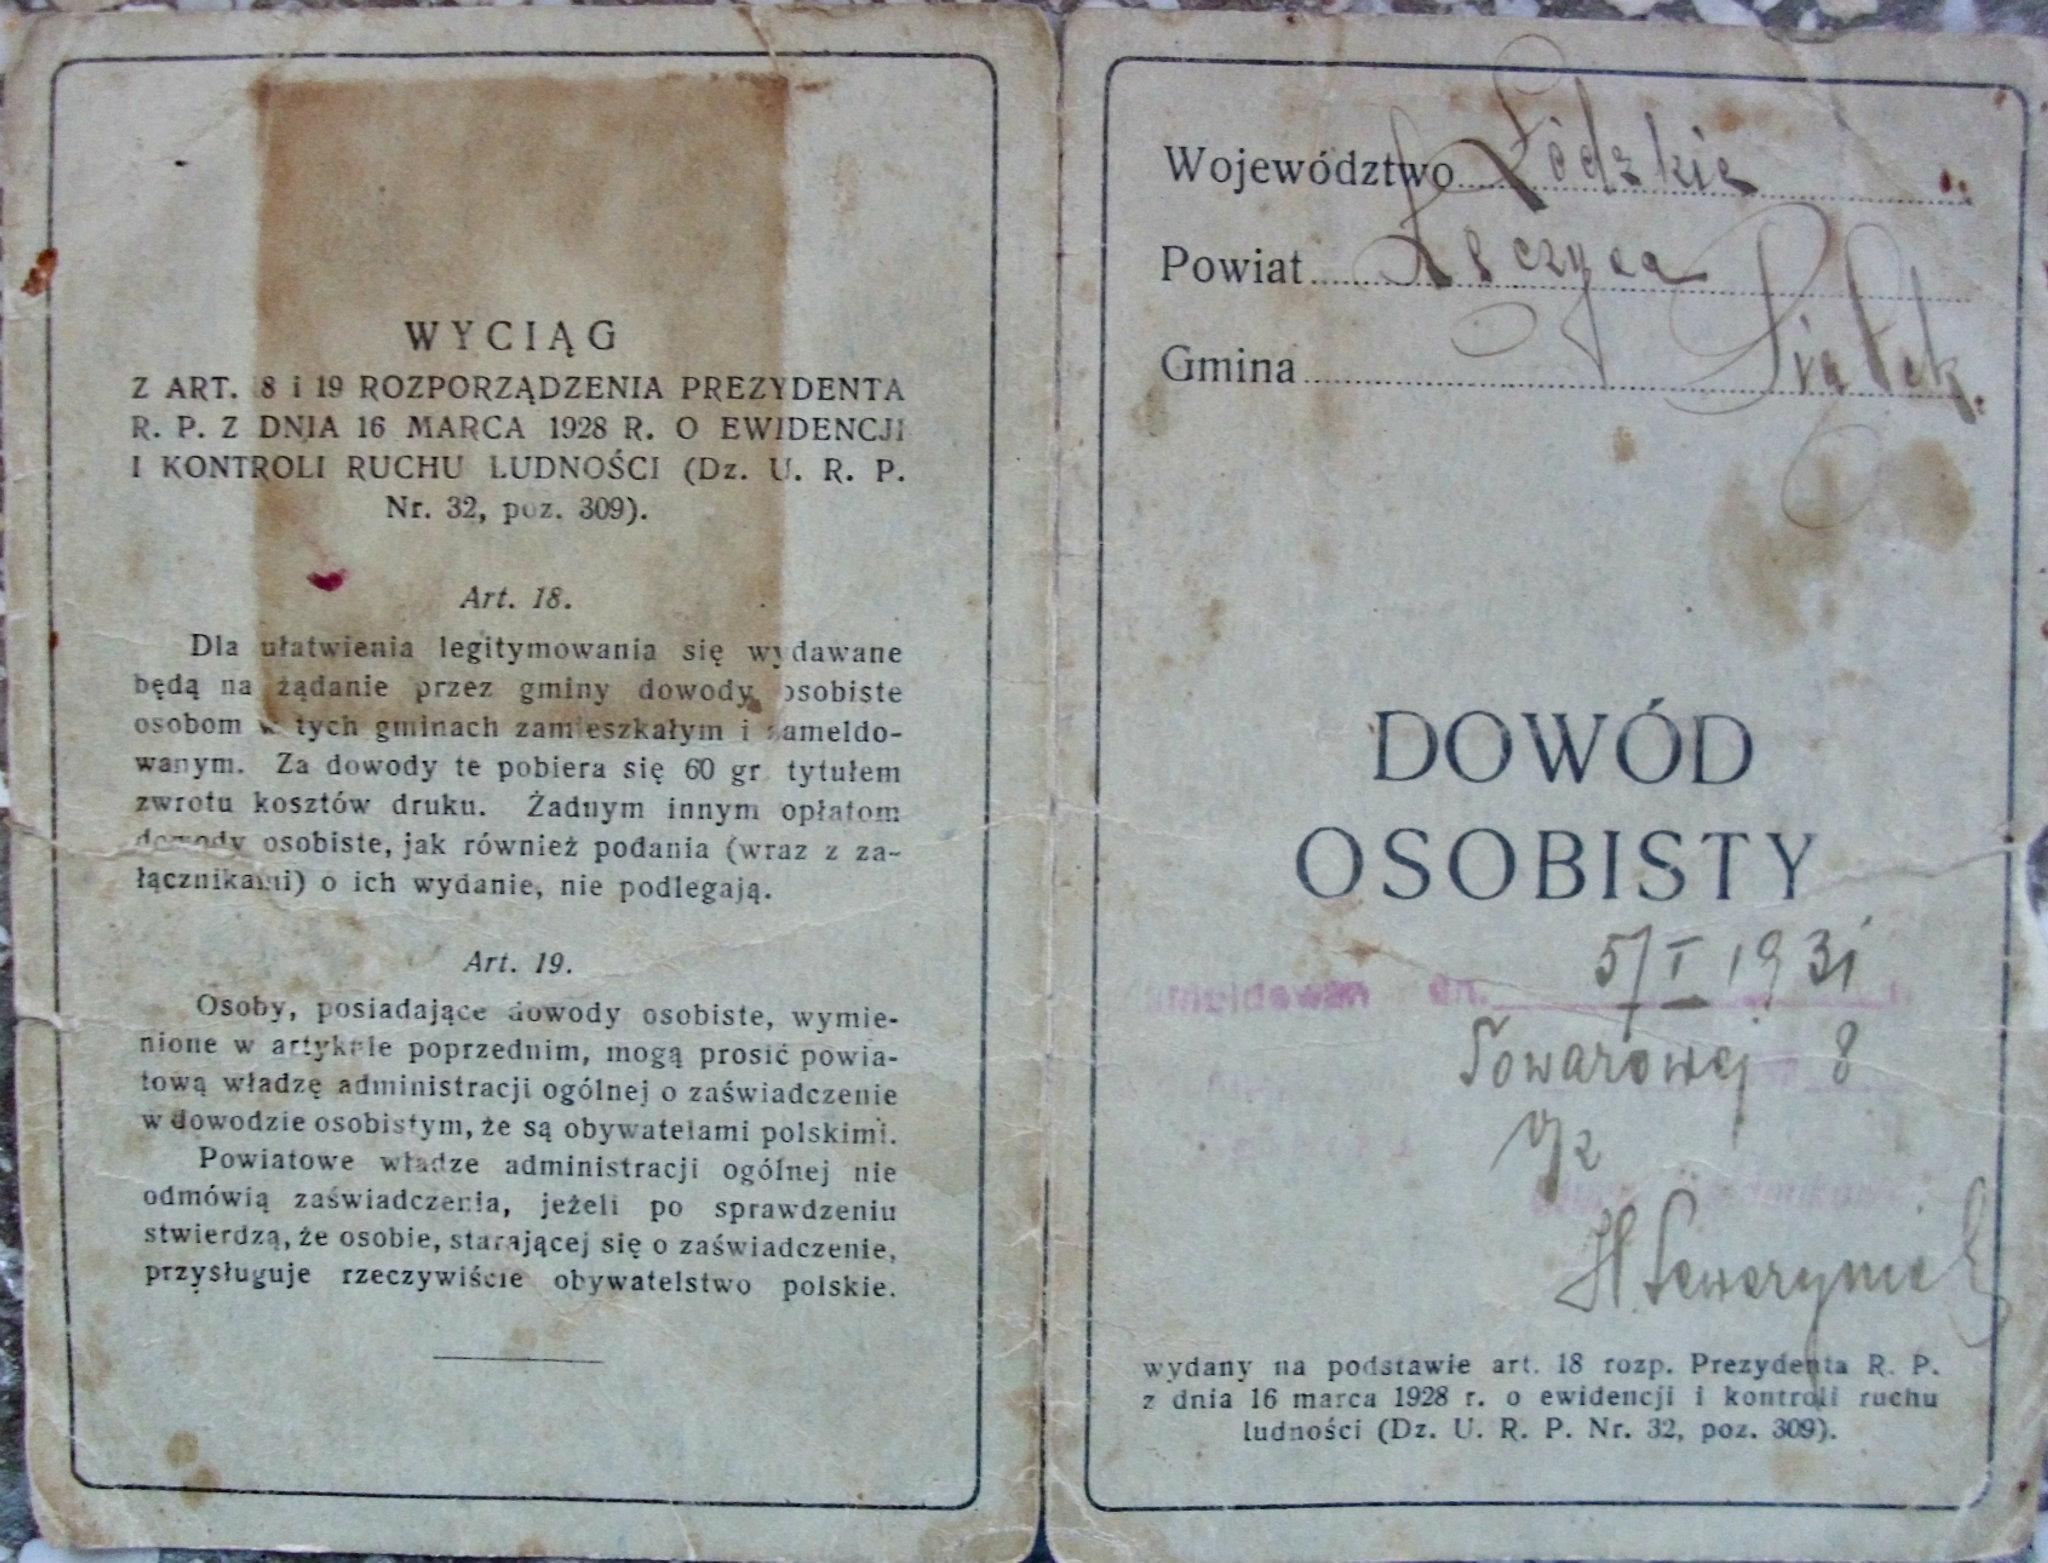 WYCIĄG
Z ART. 8 i 19 ROZPORZĄDZENIA PREZYDENTA
R. P. Z DNIA 16 MARCA 1928 R. O EWIDENCJI
I KONTROLI RUCHU LUDNOŚCI (Dz. U. R. P.
Nr. 32, poz. 309).
Art. 18.
Dla ułatwienia legitymowania się wydawane
będą na żądanie przez gminy dowody osobiste
osobom w tych gminach zamieszkałym i zameldo-
wanym. Za dowody te pobiera się 60 gr. tytułem
zwrotu kosztów druku. Żadnym innym opłatom
dowody osobiste, jak również podania (wraz z za-
łącznikami) o ich wydanie, nie podlegają.
Art. 19.
Osoby, posiadające dowody osobiste, wymie-
nione w artykule poprzednim, mogą prosić powia-
tową władzę administracji ogólnej o zaświadczenie
w dowodzie osobistym, że są obywatelami polskimi.
Powiatowe władze administracji ogólnej nie
odmówią zaświadczenia, jeżeli po sprawdzeniu
stwierdzą, że osobie, starającej się o zaświadczenie,
przysługuje rzeczywiście obywatelstwo polskie.
Województwo Łódzkie
Powiat Łęczyca
Gmina Piątek.
DOWÓD
OSOBISTY
dn. 5/I 1931
Towarowej 8
wydany na podstawie art. 18 rozp. Prezydenta R. P.
z dnia 16 marca 1928 r. o ewidencji i kontroli ruchu
ludności (Dz. U. R. P. Nr. 32, poz. 309).